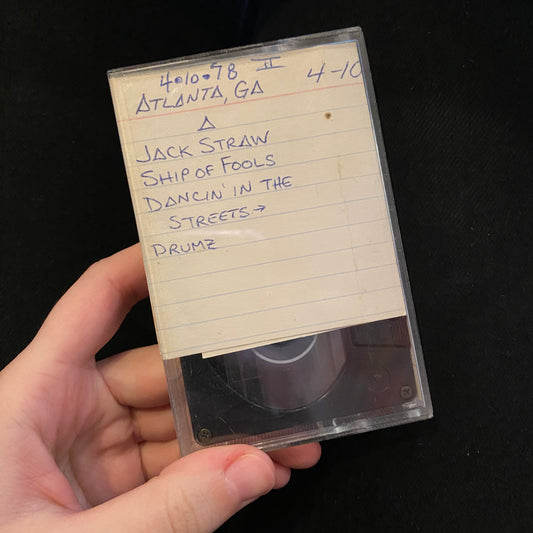 4•10•78 II 4-10
ATLANTA, GA
A
JACK STRAW
SHIP OF FOOLS
DANCIN' IN THE
STREETS→
DRUMZ